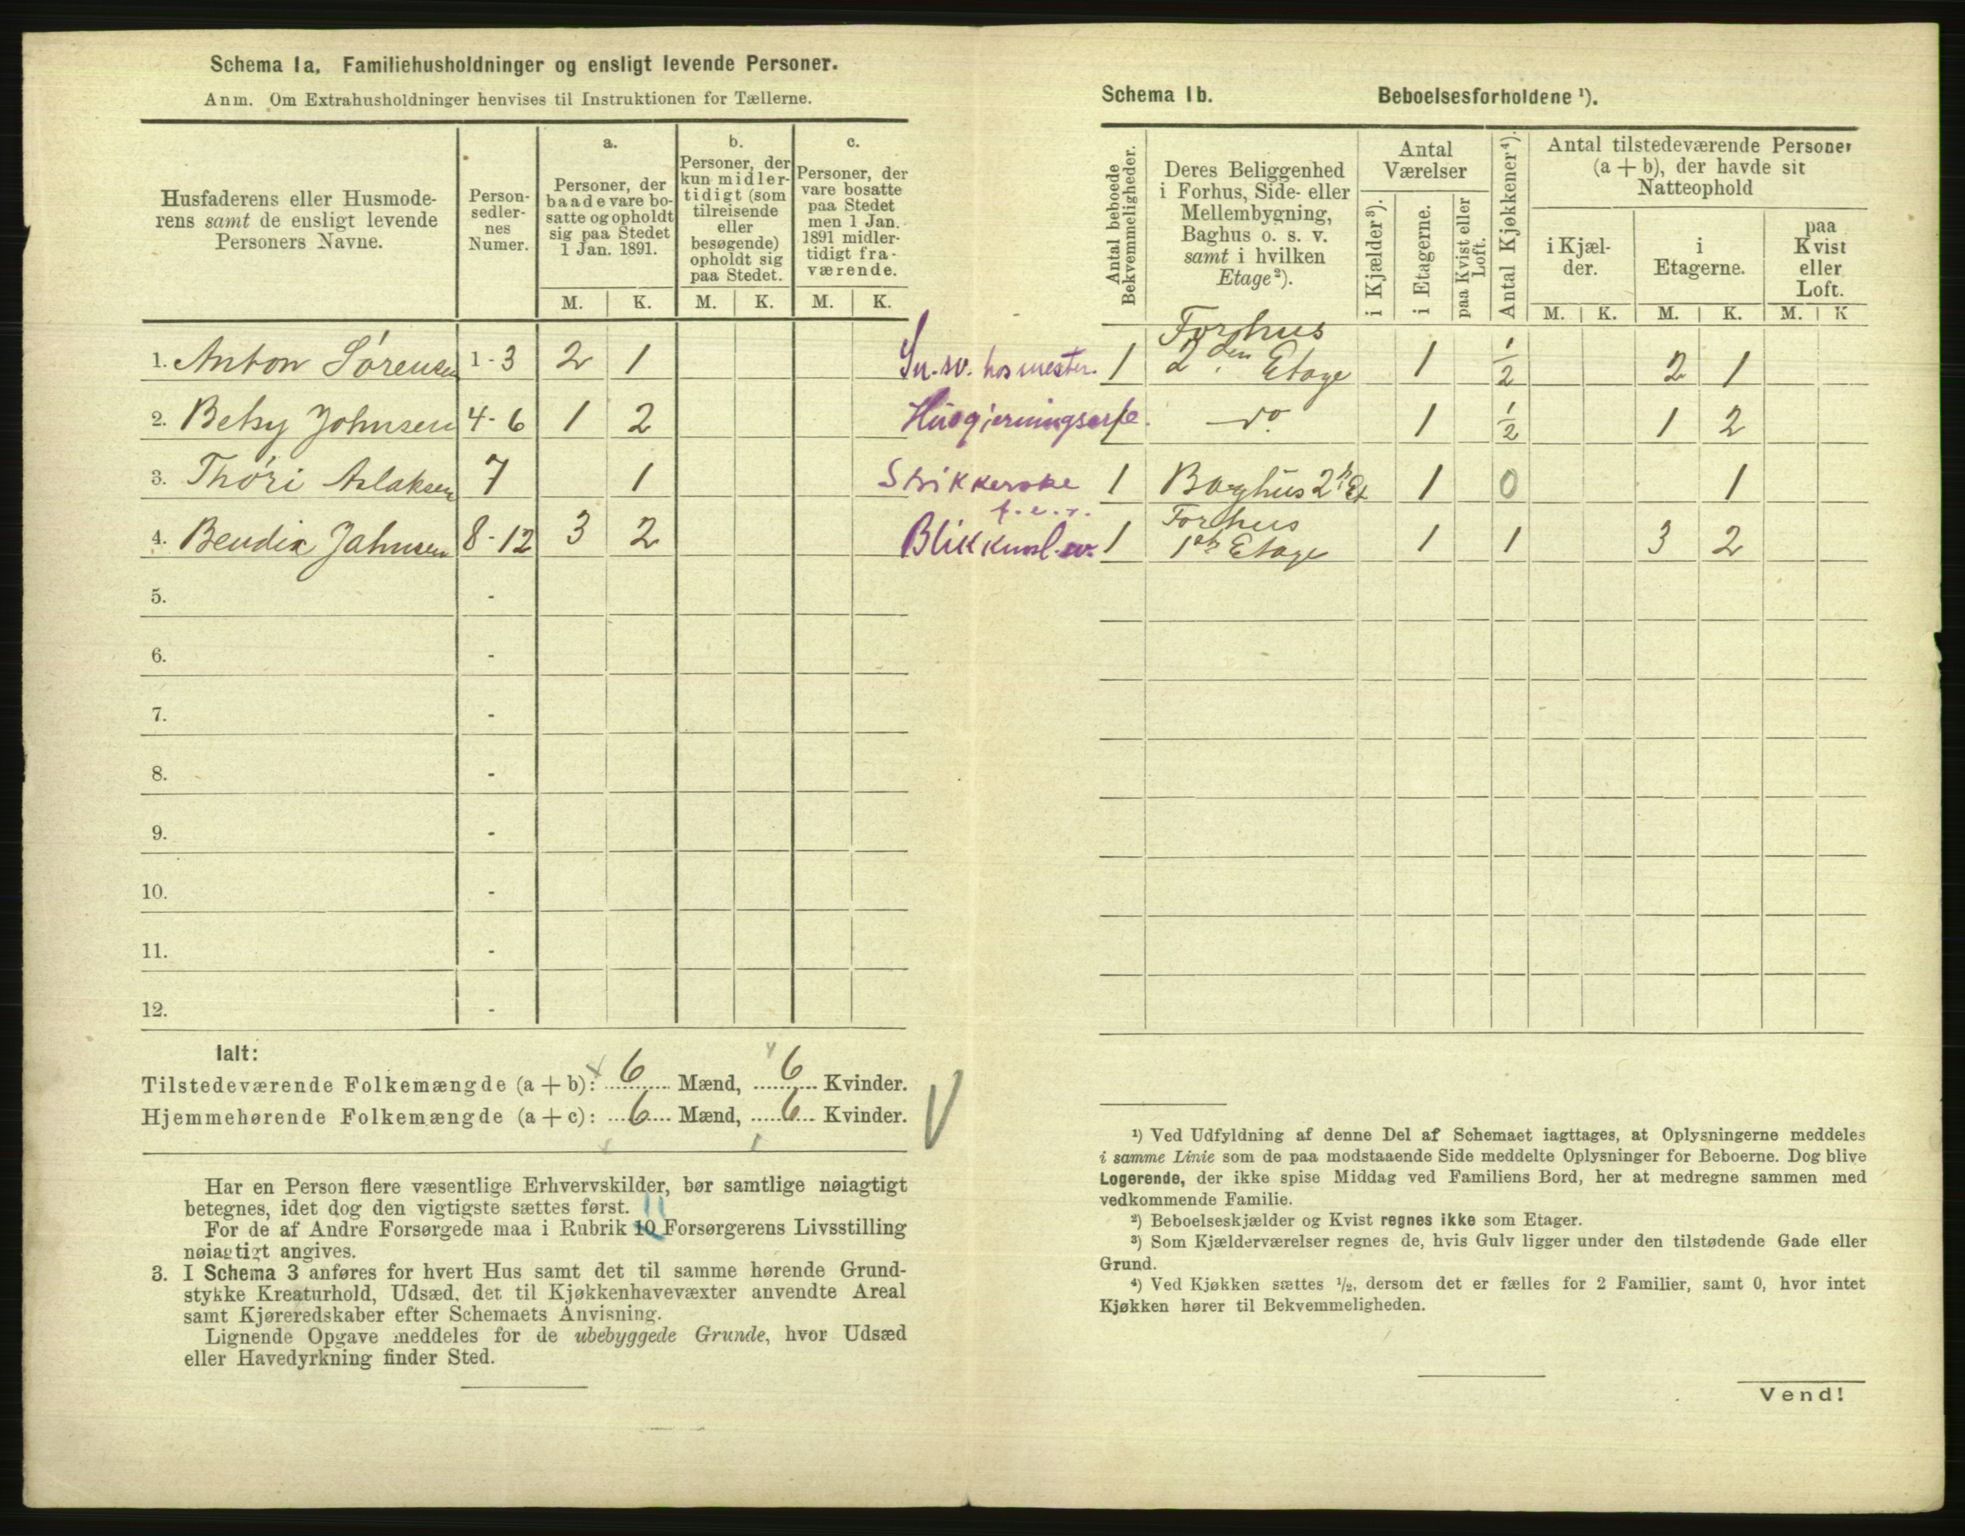 Schema 1a. Familiehusholdninger og ensligt levende Personer.
Anm. Om Extrahusholdninger henvises til Instruktionen for Tællerne.
Husfaderens eller Husmode-
rens samt de ensligt levende
Personers Navne.
Person-
sedler-
nes
Numer.
a.
Personer, der
baade vare bo-
satte og opholdt
sig paa Stedet
1 Jan. 1891.
b.
Personer, der
kun midler-
tidigt (som
tilreisende
eller
besøgende)
opholdt sig
paa Stedet.
c.
Personer, der
vare bosatte
paa Stedet
men 1 Jan.
1891 midler-
tidigt fra-
værende.
M. K. M. K. M. K.
1. Anton Sørensen 1 - 3 2 1
2. Betsy Johnsen 4 - 6 1 2
3. Thóri Aslaksen 7 1
4. Bendix Jahnsen 8 - 12 3 2
5. -
6. -
7. -
8. -
9. -
10. -
11. -
12. -
Ialt:
Tilstedeværende Folkemængde (a + b): 6 Mænd, 6 Kvinder.
Hjemmehørende Folkemængde (a + c): 6 Mænd, 6 Kvinder.
Har en Person flere væsentlige Erhvervskilder, bør samtlige nøiagtigt
betegnes, idet dog den vigtigste sættes først. 11
For de af Andre Forsørgede maa i Rubrik 10 Forsørgerens Livsstilling
nøiagtigt angives.
3. I Schema 3 anføres for hvert Hus samt det til samme hørende Grund-
stykke Kreaturhold, Udsæd, det til Kjøkkenhavevæxter anvendte Areal
samt Kjøreredskaber efter Schemaets Anvisning.
Lignende Opgave meddeles for de ubebyggede Grunde, hvor Udsæd
eller Havedyrkning finder Sted.
Schema 1b. Beboelsesforholdene ¹).
Antal beboede
Bekvemmeligheder.
Deres Beliggenhed
i Forhus, Side- eller
Mellembygning,
Baghus o. s. v.
samt i hvilken
Etage²).
Antal
Værelser
i Kjælder³).
i Etagerne.
paa Kvist eller
Loft.
Antal Kjøkkener⁴).
Antal tilstedeværende Personer
(a + b), der havde sit
Natteophold
i Kjæl-
der.
i
Etagerne.
paa
Kvist
eller
Loft.
M. K. M. K. M. K
Sn.sv. hos mester. 1 Forhus 2den Etage 1 1/2 2 1
Husgjerningserfe. 1 do 1 1/2 1 2
Strikkerske f.e.r. 1 Baghus 2n Et 1 0 1
1 Forhus 1ste Etage 1 1 3 2
¹) Ved Udfyldning af denne Del af Schemaet iagttages, at Oplysningerne meddeles
i samme Linie som de paa modstaaende Side meddelte Oplysninger for Beboerne. Dog blive
Logerende, der ikke spise Middag ved Familiens Bord, her at medregne sammen med
vedkommende Familie.
²) Beboelseskjælder og Kvist regnes ikke som Etager.
³) Som Kjælderværelser regnes de, hvis Gulv ligger under den tilstødende Gade eller
Grund.
⁴) Ved Kjøkken sættes ½, dersom det er fælles for 2 Familier, samt 0, hvor intet
Kjøkken hører til Bekvemmeligheden.
Vend!